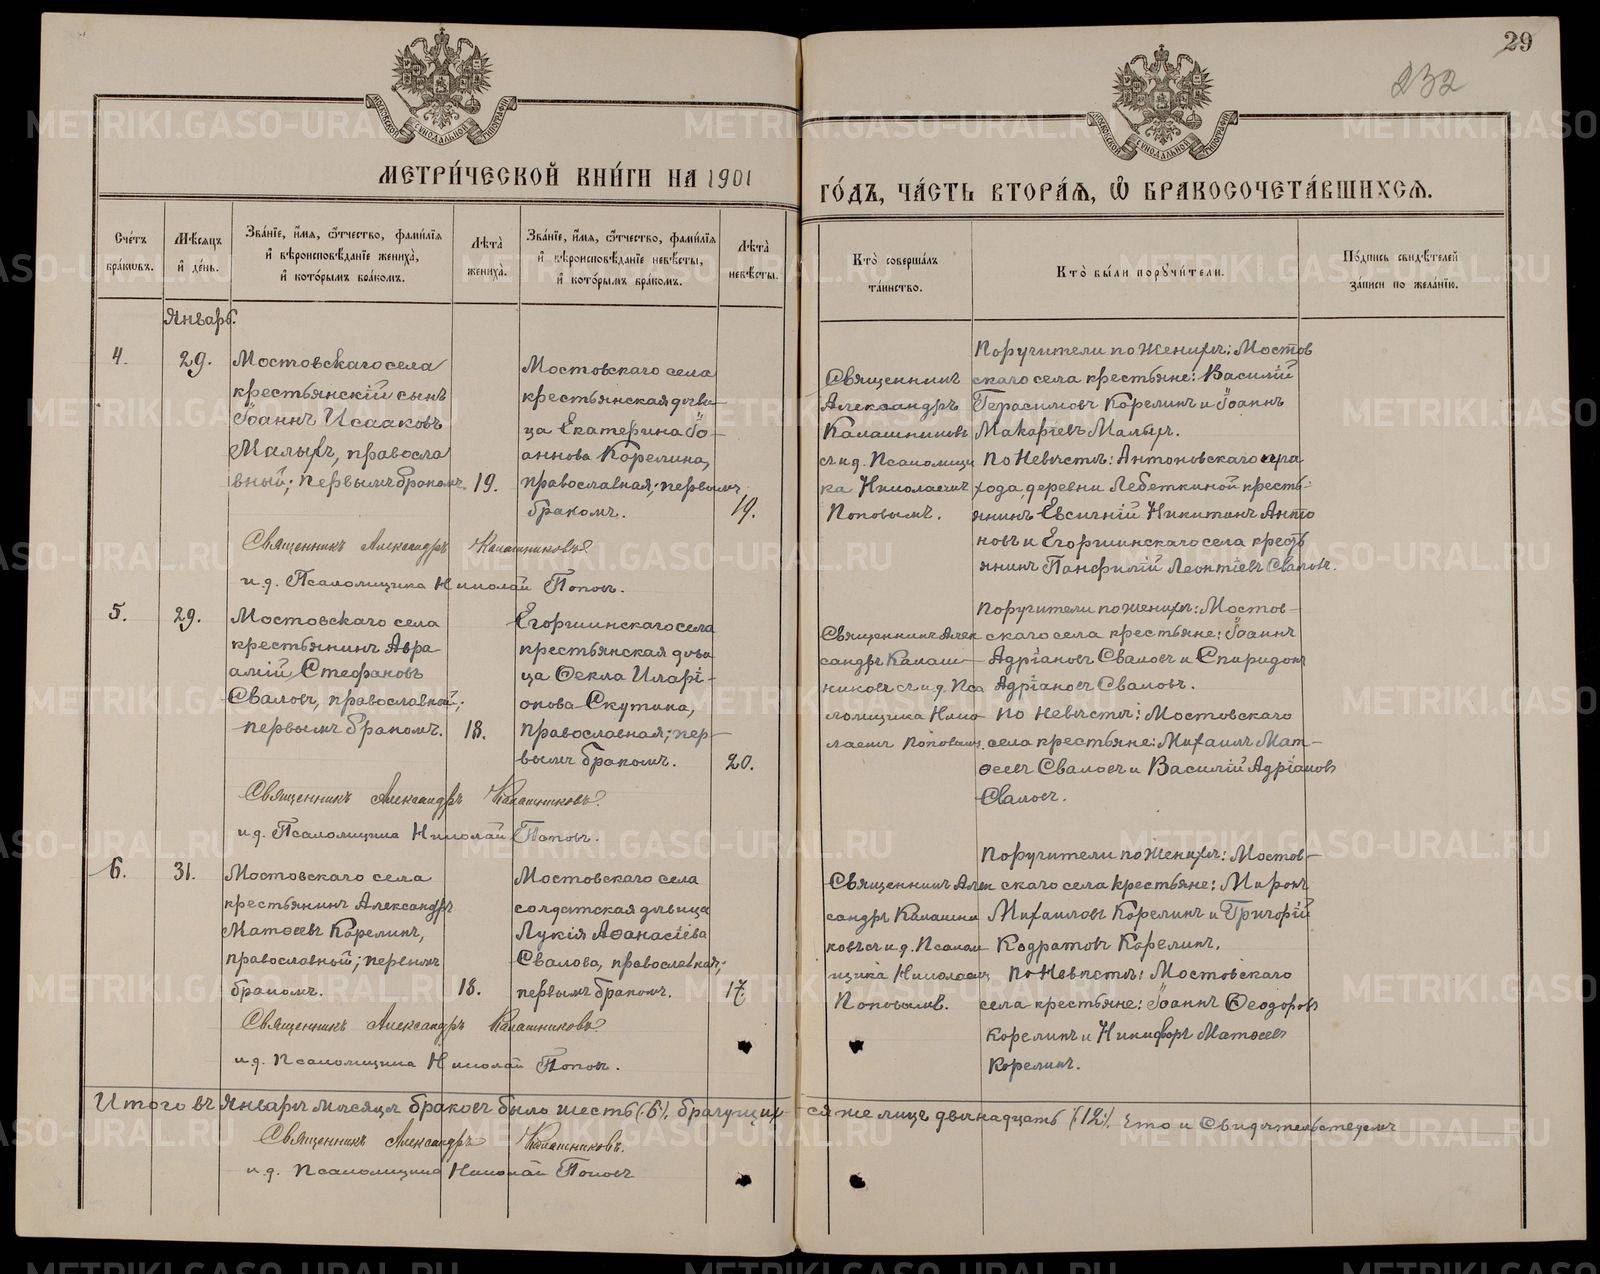 29
232
МЕТРИ́ЧЕСКОЙ КНИ́ГИ НА 1901
ГО́ДЪ, ЧА́СТЬ ВТОРА́Я, Ѡ БРАКОСОЧЕТА́ВШИХСЯ.
Сче́тъ бра́ковъ.
Мѣ́сяцъ и҆ де́нь.
Зва́нїе, и҆́мя, ѻ҆́тчество, фами́лїя и҆ вѣроисповѣ́данїе жениха̀, и҆ кото́рымъ бра́комъ.
Лѣта̀ жениха̀.
Зва́нїе, и҆́мя, ѻ҆́тчество, фами́лїя и҆ вѣроисповѣ́данїе невѣ́сты, и҆ кото́рымъ бра́комъ.
Лѣта̀ невѣ́сты.
Кто̀ соверша́лъ та́инство.
Кто̀ бы́ли поручи́тели.
По́дпись свидѣ́телей за́писи по жела́нїю.
Январь.
4.
29.
Мостовскаго села
крестьянскій сынъ
Іоаннъ Исааковъ
Малыхъ, правосла
вный; первымъ бракомъ.
19.
Мостовскаго села
крестьянская дѣви
ца Екатерина Іо-
аннова Корелина,
православная; первымъ
бракомъ.
19.
Священникъ
Александръ
Калашниковъ
съ и.д. Псаломщи
ка Николаемъ
Поповымъ.
Поручители по женихѣ: Мостов
скаго села крестьяне: Василій
Герасимовъ Корелинъ и Іоаннъ
Макаріевъ Малыхъ.
По Невѣстѣ: Антоновскаго при
хода, деревни Лебеткиной кресть-
янинъ Евсигній Никитинъ Анто
новъ и Егоршинскаго села кресть
янинъ Панфилій Леонтіевъ Сваловъ.
Священникъ Александръ Калашниковъ
и.д. Псаломщика Николай Поповъ.
5.
29.
Мостовскаго села
крестьянинъ Авра
амій Стефановъ
Сваловъ, православный;
первымъ бракомъ.
18.
Егоршинскаго села
крестьянская дѣви
ца Ѳекла Иларі-
онова Скутина,
православная; пер-
вымъ бракомъ.
20.
Священникъ Алек
сандръ Калаш-
никовъ съ и.д. Пса
ломщика Нико
лаемъ Поповымъ.
Поручители по женихѣ: Мостов-
скаго села крестьяне: Іоаннъ
Адріановъ Сваловъ и Спиридонъ
Адріановъ Сваловъ.
По невѣстѣ: Мостовскаго
села крестьяне: Михаилъ Мат-
ѳеевъ Сваловъ и Василій Адріановъ
Сваловъ.
Священникъ Александръ Калашниковъ
и.д. Псаломщика Николай Поповъ.
6.
31.
Мостовскаго села
крестьянинъ Александръ
Матѳеевъ Корелинъ,
православный; первымъ
бракомъ.
18.
Мостовскаго села
солдатская дѣвица
Лукія Аѳанасіева
Свалова, православная;
первымъ бракомъ.
17
Священникъ Алек
сандръ Калашни
ковъ съ и.д. Псалом
щика Николаемъ
Поповымъ.
Поручители по женихѣ: Мостов-
скаго села крестьяне: Миронъ
Михаиловъ Корелинъ и Григорій
Кодратовъ Корелинъ.
По Невѣстѣ: Мостовскаго
села крестьяне: Іоаннъ Ѳеодоровъ
Корелинъ и Никифоръ Матѳеевъ
Корелинъ.
Священникъ Александръ Калашниковъ
и.д. Псаломщика Николай Поповъ.
Итого въ Январѣ мѣсяцѣ браковъ было шесть (:6:), брачущих-ся же лицъ двѣнадцать (:12:). Что и свидѣтельствуемъ
Священникъ Александръ Калашниковъ.
и.д. Псаломщика Николай Поповъ
METRIKI.GASO-URAL.RU